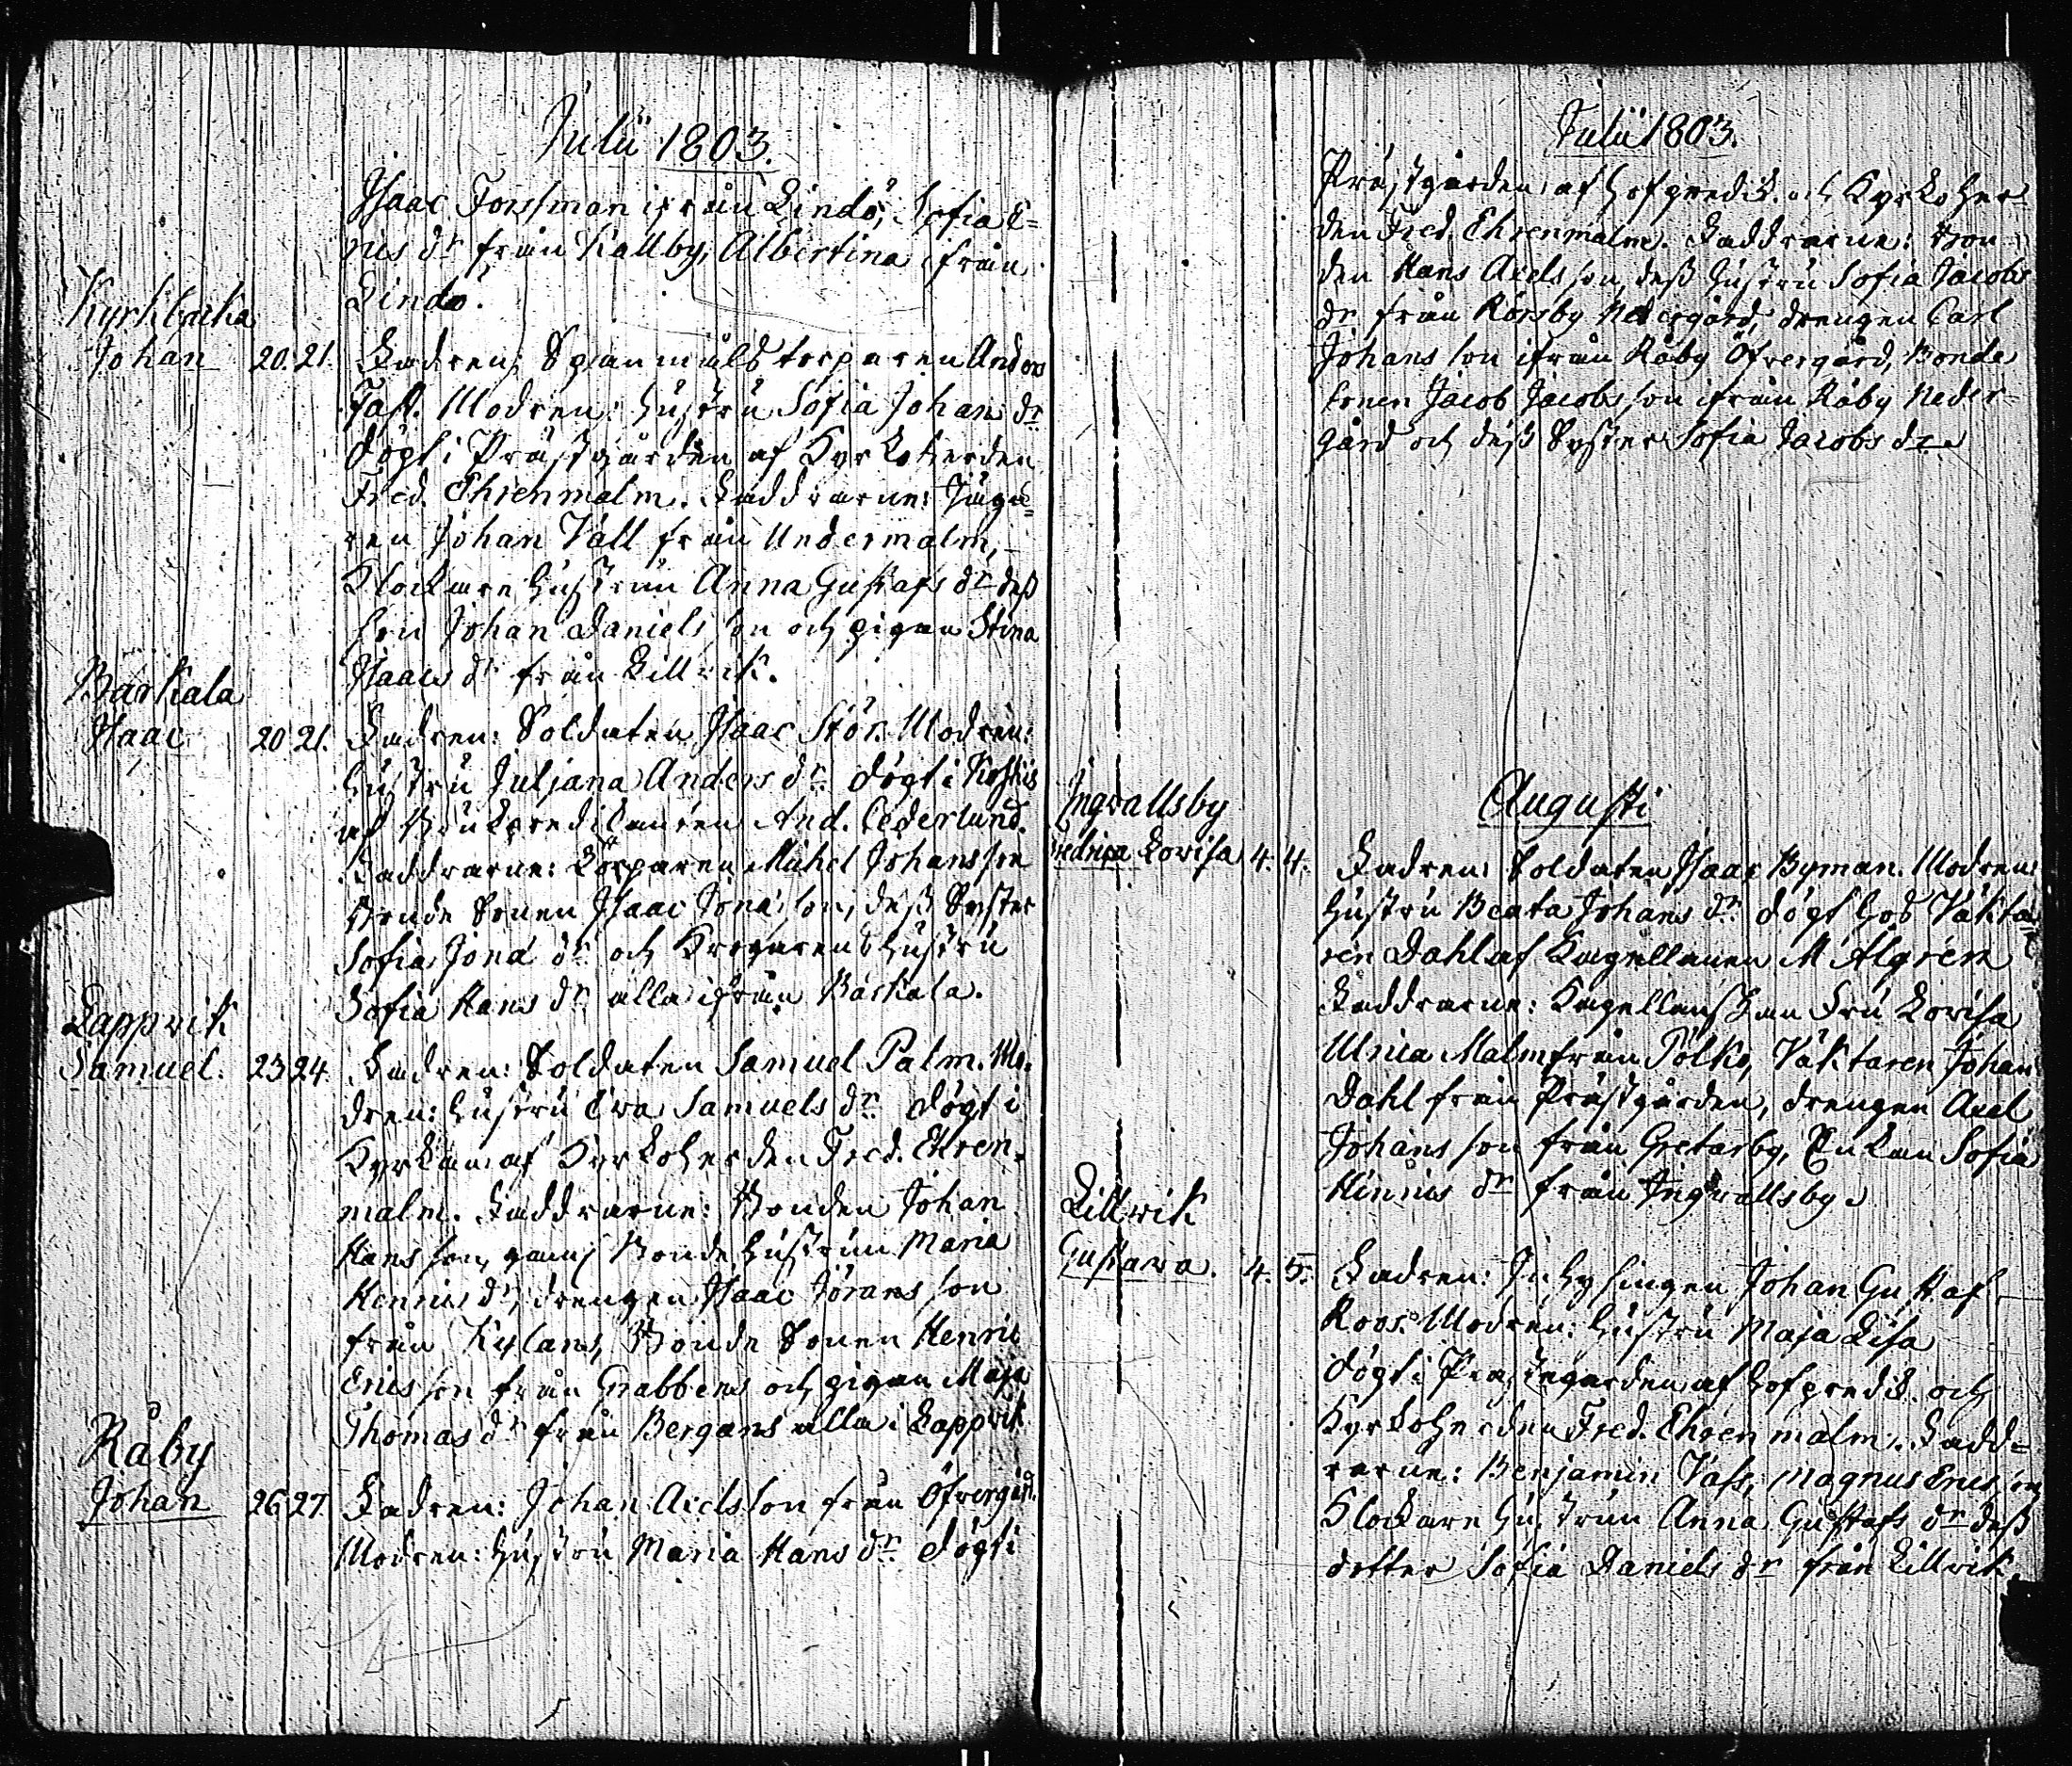 Julii 1803.
Isaac Forssman ifrån Lindö, Sofia E=
rics dr från Kallby, Albertina ifrån
Lindö.
Kyrkbacka
Johan 20. 21. Fadren: Spanmåls torparen Anders
Modren: Hustru Sofia Johans dr
döpt i Prästgården af Kyrkoherden
Fred. Ehrenmalm. Faddrarne: Jäga=
ren Johan Vall från Undermalm,
Klockare Hustrun Anna Gustafs dr dess
son Johan Daniels son och pigan Stina
Isaacs dr från Lillvik.
Barkala
Isaac 20 21. Fadren: Soldaten Isaac Stör. Modren:
Hustru Juljana Anders dr döpt i
af Brukspredikanten And. Cederlund.
Faddrarne: Torparen Michel Johansson
Bonde Sonen Isaac Jonæ son, dess Syster
Sofia Jonæ dr och Krogarens Hustru
Sofia Hans dr alla ifrån Barkala.
Lappvik
Samuel. 23 24. Fadren: Soldaten Samuel Palm. Mo=
dren: Hustru Eva Samuels dr döpt i
Kyrkan af Kyrkoherden Fred. Ehren=
malm. Faddrarne: Bonden Johan
Hans son, Bonde Hustrun Maria
Henrics dr, drengen Isaac Jörans son
från Kylans, Bonde Sonen Henric
Erics son från Grabbens och pigan Maja
Thomas dr från Bergans alla i Lappvik
Råby
Johan 26 27. Fadren: Johan Axelsson från Öfvergård.
Modren: Hustru Maria Hans dr döpt i
Julii 1803.
Prästgården af Hofpredik. och Kyrkoher=
den Fred. Ehrenmalm. Faddrarne: Bon=
den Hans Axels son, dess Hustru Sofia Jacobs
dr från Nedergård, drengen Carl
Johans son ifrån Råby Öfvergård, Bonde
sonen Jacob Jacobs son ifrån Råby Neder=
gård och dess Syster Sofia Jacobs dr.
Augusti
Ingvallsby
Fredrica Lovisa 4. 4. Fadren: Soldaten Isaac Byman. Modren:
Hustru Beata Johans dr döpt hos Väkta=
ren Dahl af Kapellanen M. Algren
Faddrarne: Kapellanskan Fru Lovisa
Ulrica Malm från Pölkö, Väktaren Johan
Dahl från Prästgården, drengen Axel
Johans son från Gretarby, Enkan Sofia
Hinrics dr från Ingvallsby.
Lillvik
Gustava. 4. 5. Fadren: Inhysingen Johan Gustaf
Roos. Modren: Hustru Maja Lisa
döpt i Prästegården af Hofpredik. och
Kyrkoherden Fred. Ehrenmalm. Fadd=
rarne: Benjamin Vass, Magnus Erics son
Klockare Hustrun Anna Gustafs dr dess
dotter Sofia Daniels dr från Lillvik.